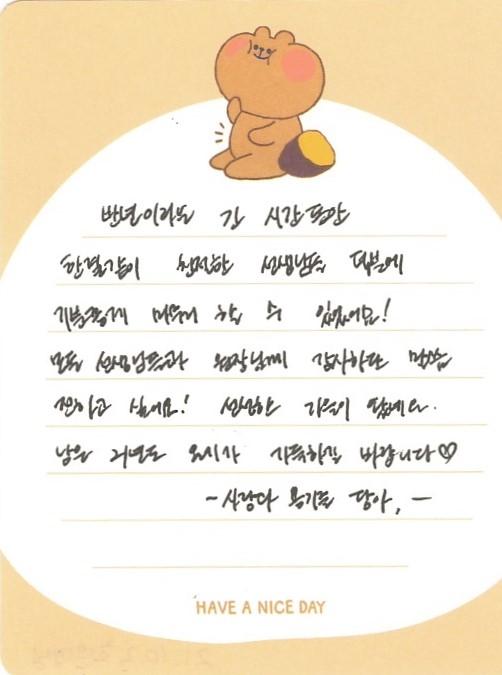 반년이라는 긴 시간동안
한결같이 친절한 선생님들 덕분에
기분좋게 마무리 할 수 있었어요!
모든 선생님들과 원장님께 감사하단 말씀
전하고 싶어요! 선선한 가을이 됐네요.
남은 2021년도 온기가 가득하길 바랍니다♡
-사랑과 용기를 담아, -
HAVE A NICE DAY